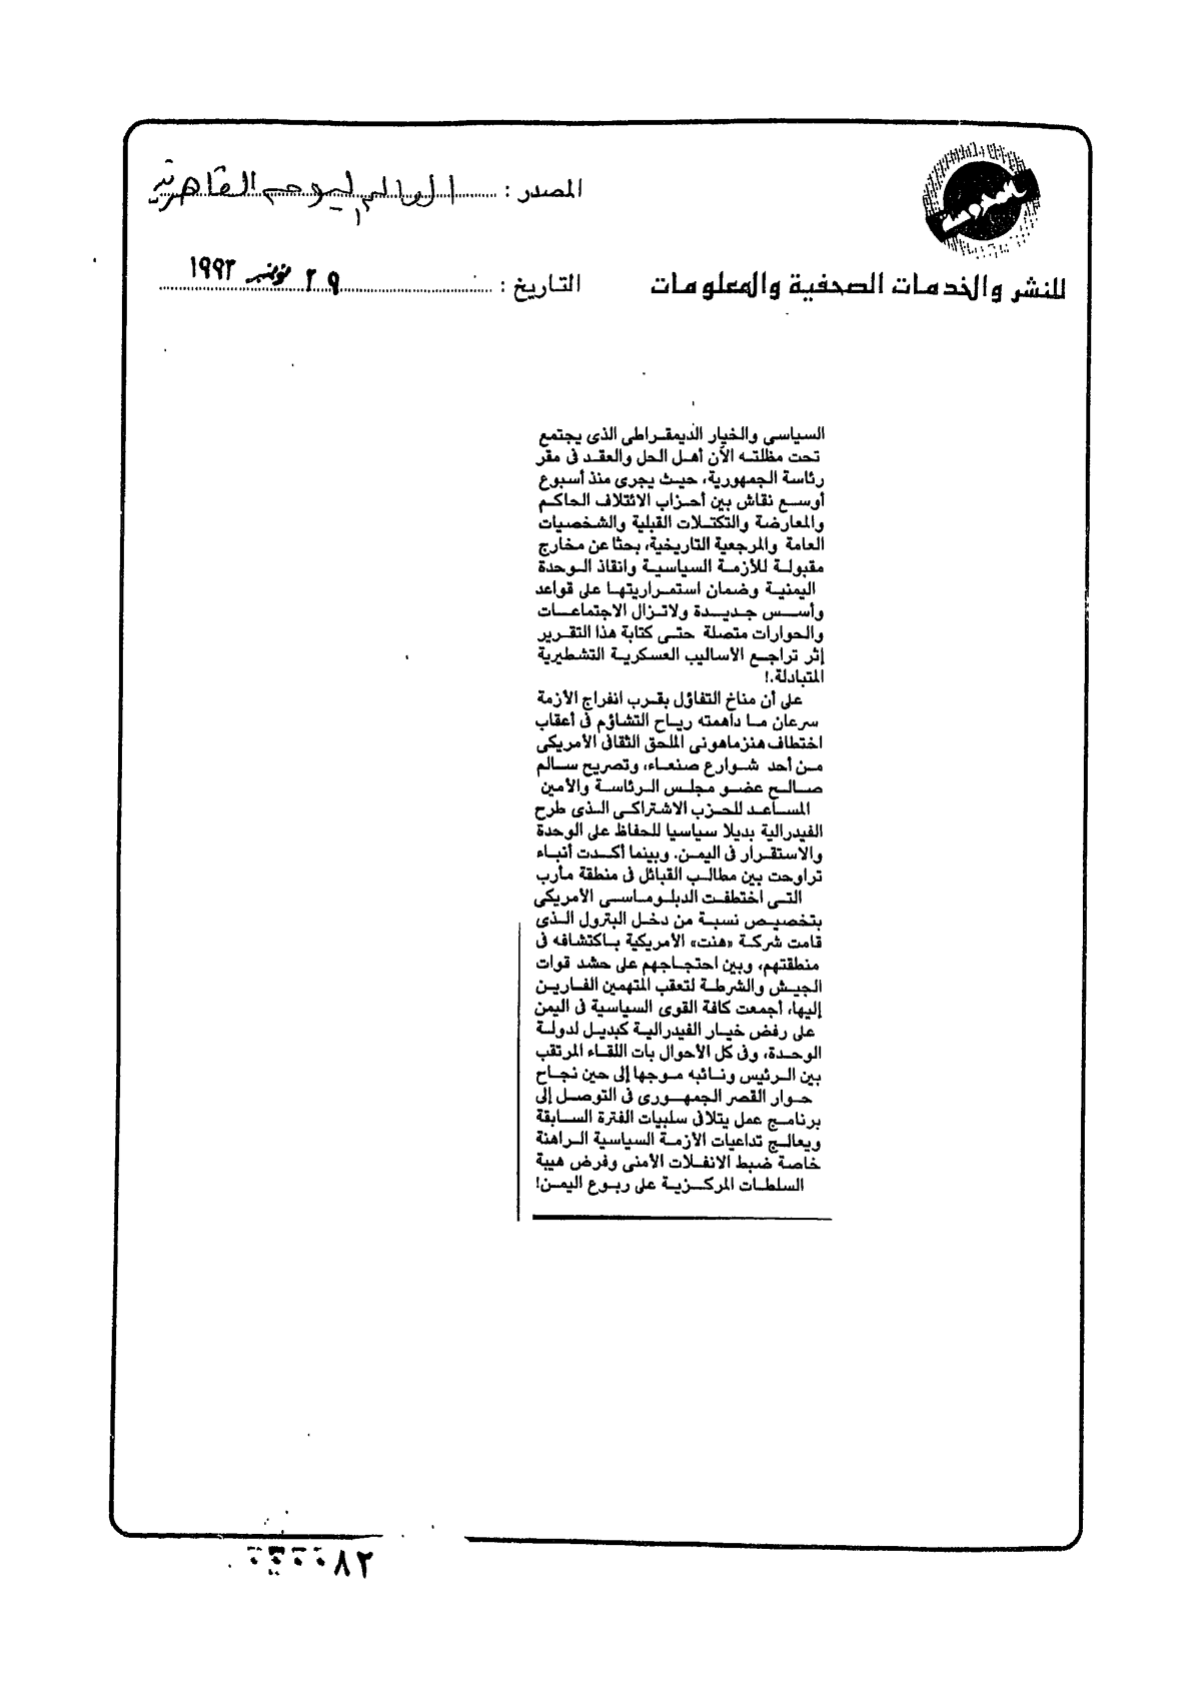 المصدر : العالم اليوم القاهرية
للنشر والخدمات الصحفية والمعلومات
التاريخ : ٢٩ نوفمبر ١٩٩٣
السياسى والخيار الديمقراطى الذى يجتمع
تحت مظلته الآن أهل الحل والعقد فى مقر
رئاسة الجمهورية، حيث يجرى منذ أسبوع
أوسع نقاش بين أحزاب الائتلاف الحاكم
والمعارضة والتكتلات القبلية والشخصيات
العامة والمرجعية التاريخية، بحثا عن مخارج
مقبولة للأزمة السياسية وانقاذ الوحدة
اليمنية وضمان استمراريتها على قواعد
وأسس جديدة ولاتزال الاجتماعات
والحوارات متصلة حتى كتابة هذا التقرير
إثر تراجع الأساليب العسكرية التشطيرية
المتبادلة.!
على أن مناخ التفاؤل بقرب انفراج الأزمة
سرعان ما داهمته رياح التشاؤم فى أعقاب
اختطاف هنزماهونى الملحق الثقافى الأمريكى
من أحد شوارع صنعاء، وتصريح سالم
صالح عضو مجلس الرئاسة والأمين
المساعد للحزب الاشتراكى الذى طرح
الفيدرالية بديلا سياسيا للحفاظ على الوحدة
والاستقرار فى اليمن. وبينما أكدت أنباء
تراوحت بين مطالب القبائل فى منطقة مأرب
التى اختطفت الدبلوماسى الأمريكى
بتخصيص نسبة من دخل البترول الذى
قامت شركة «هنت» الأمريكية باكتشافه فى
منطقتهم، وبين احتجاجهم على حشد قوات
الجيش والشرطة لتعقب المتهمين الفارين
إليها، أجمعت كافة القوى السياسية فى اليمن
على رفض خيار الفيدرالية كبديل لدولة
الوحدة، وفى كل الأحوال بات اللقاء المرتقب
بين الرئيس ونائبه موجها إلى حين نجاح
حوار القصر الجمهورى فى التوصل إلى
برنامج عمل يتلافى سلبيات الفترة السابقة
ويعالج تداعيات الأزمة السياسية الراهنة
خاصة ضبط الانفلات الأمنى وفرض هيبة
السلطات المركزية على ربوع اليمن!